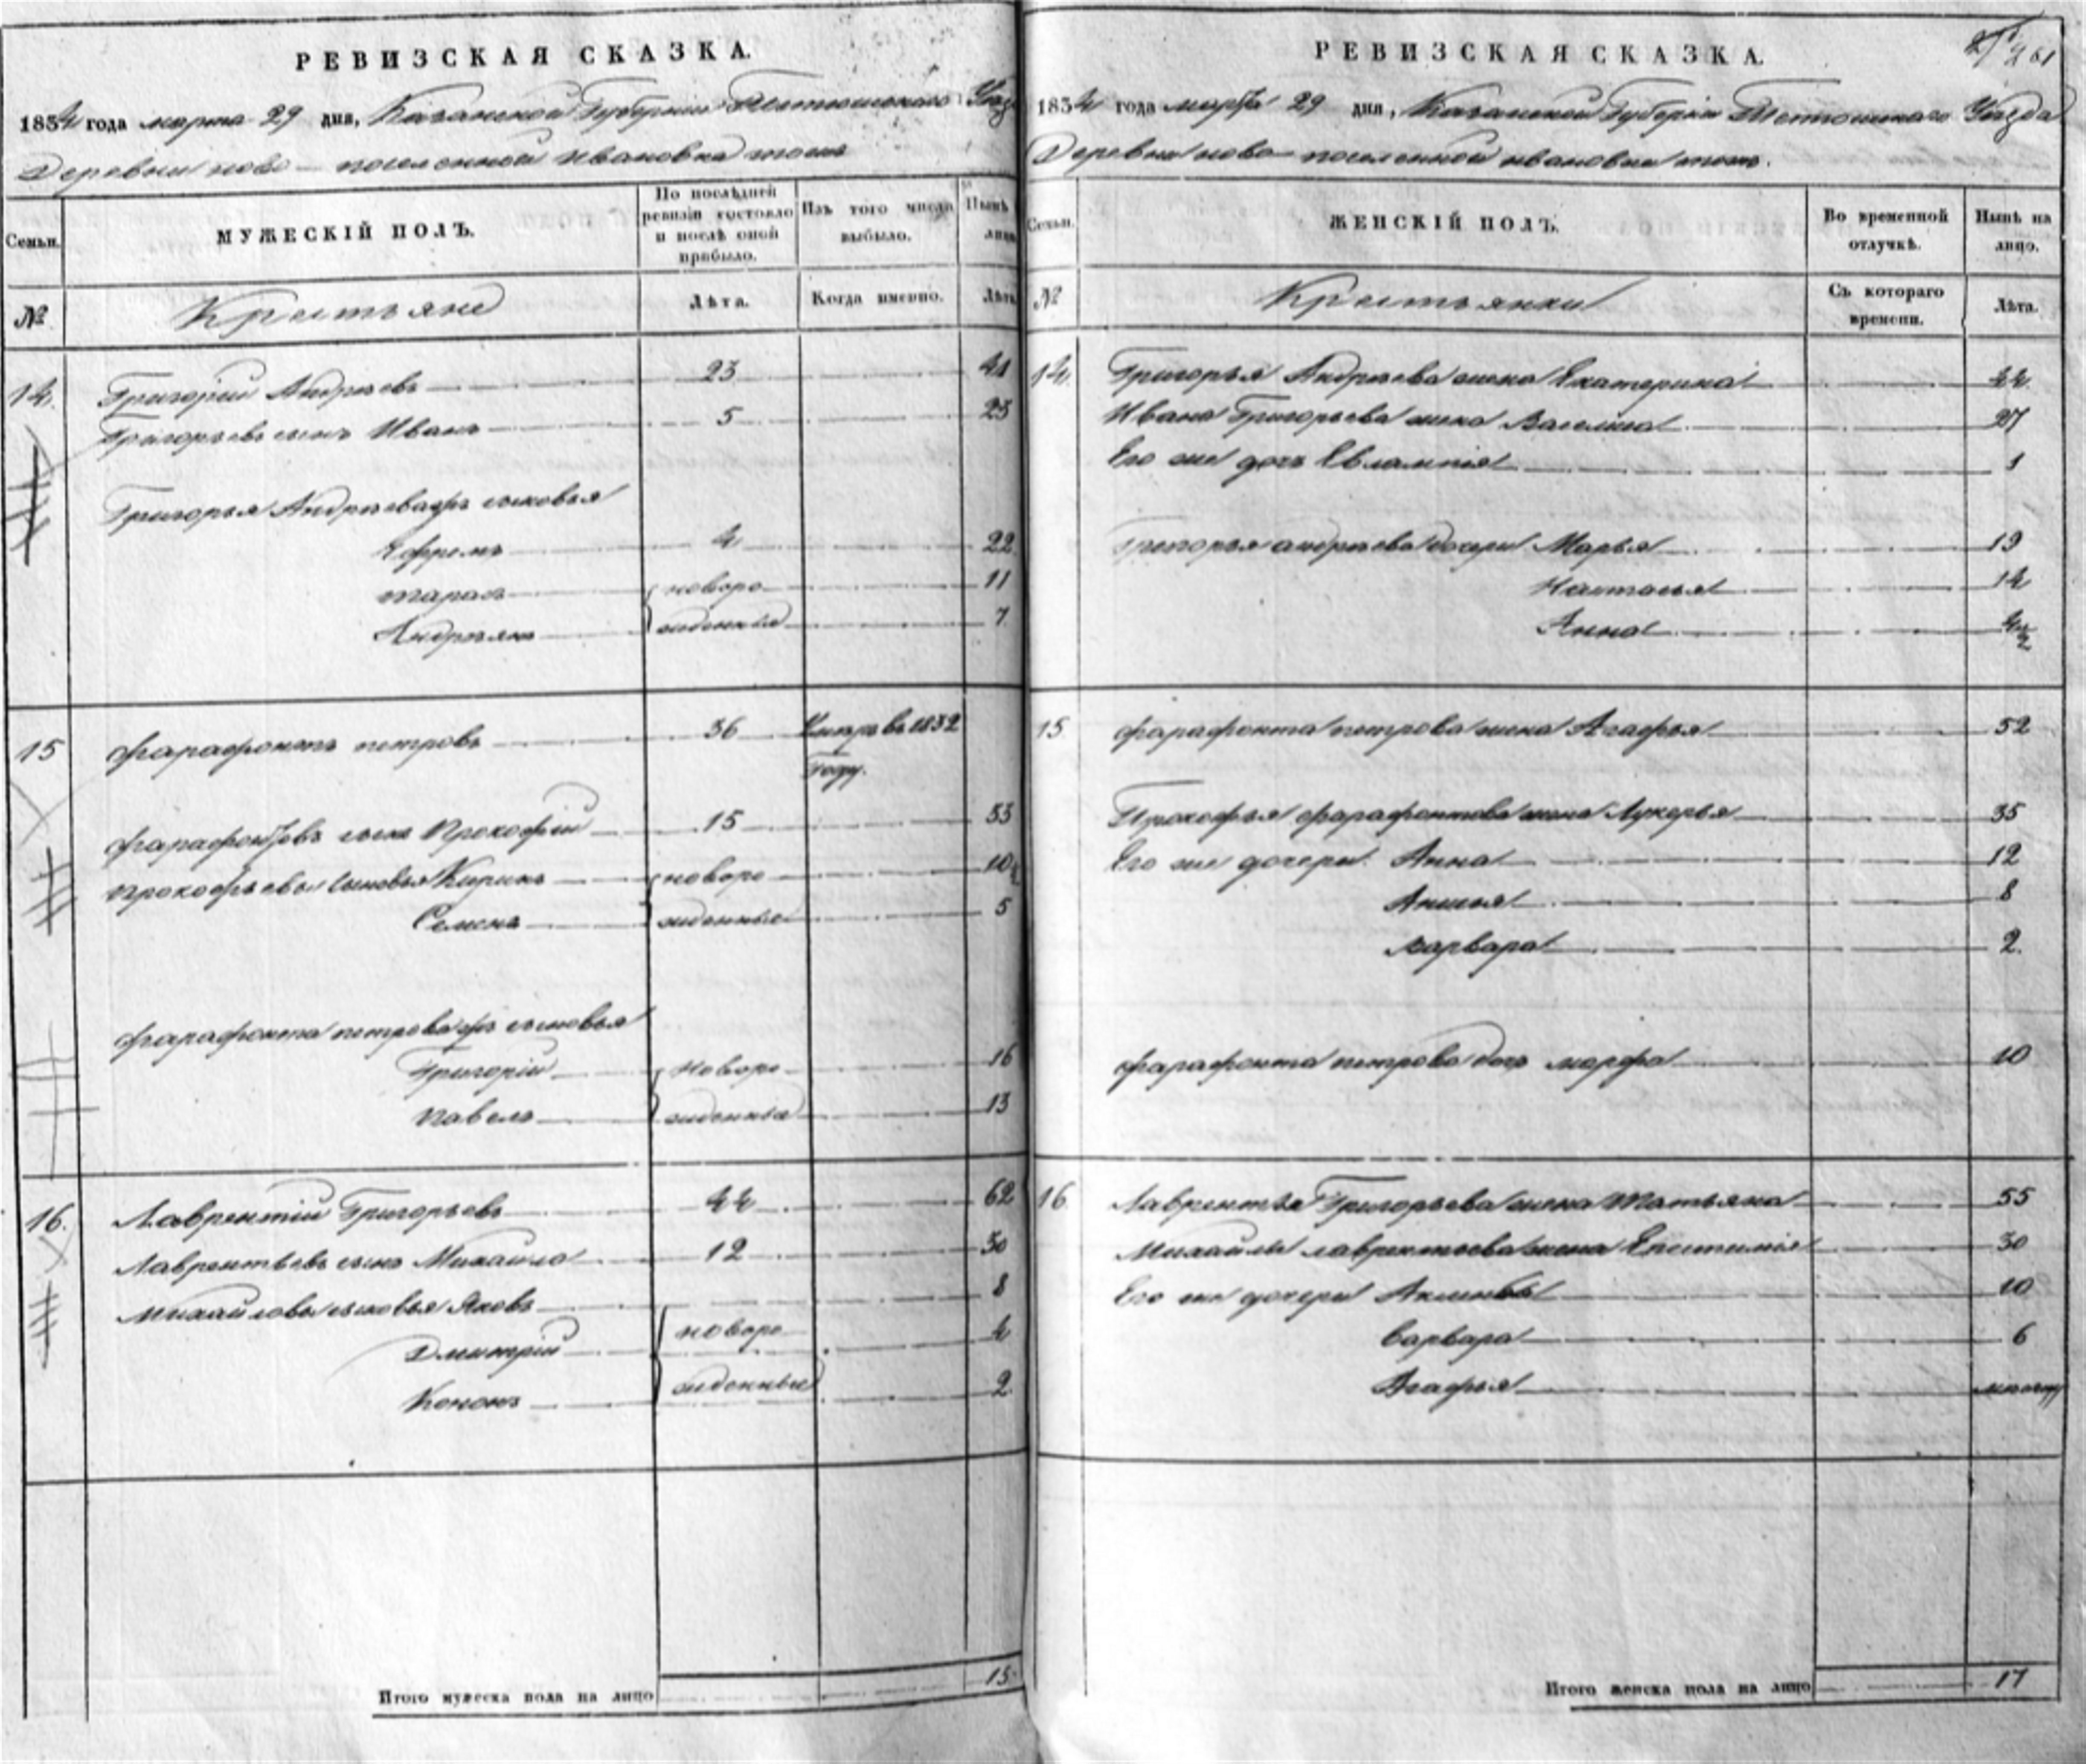 РЕВИЗСКАЯ СКАЗКА.
1834 года марта 29 дня, Казанской Губернии Тетюшского Уезда
Деревни ново-поселенной Ивановки тожъ
Семьи.
МУЖЕСКІЙ ПОЛЪ.
По послѣдней ревизіи состояло и послѣ оной прибыло.
Изъ того числа выбыло.
Нынѣ лицо
№
Крестьяне
Лѣта.
Когда именно.
Лѣта
14. Григорій Андреевъ 23 41
Григорьевъ сынъ Иванъ 5 23
Григорья Андреева сыновья
Ефремъ 4 22
Тарасъ новоро 11
Андреянъ жденные 7
15 Фарафонтъ петровъ 36 Умеръ въ 1832
Году.
Фарафонтьевъ сынъ Прокофій 15 33
Прокофьевы сыновья Кирикъ новоро 10½
Семенъ жденные 5
Фарафонта петрова сыновья
Григорій новоро 16
Павелъ жденные 13
16. Лаврентій Григорьевъ 44 62
Лаврентьевъ сынъ Михаила 12 30
Михайловы сыновья Яковъ 8
Дмитрій новоро 4
Кононъ жденные 2
Итого мужеска пола на лицо 15
РЕВИЗСКАЯ СКАЗКА.
61
1834 года марта 29 дня, Казанской Губерніи Тетюшскаго Уезда
Деревни ново-поселенной ивановки тожъ.
Семьи.
ЖЕНСКІЙ ПОЛЪ.
Во временной отлучкѣ.
Нынѣ на лицо.
№
Крестьянки
Съ котораго времени.
Лѣта.
14. Григорья Андреева жена Екатерина 44
Ивана Григорьева жена Василиса 27
Его же дочь Евлампія 1
Григорья андреева дочери Марья 19
Настасья 14
Анна 4½
15 Фарафонта петрова жена Агафья 52
Прокофья фарафонтова жена Лукерья 35
Его же дочери Анна 12
Анисья 8
варвара 2.
Фарафонта петрова дочь марфа 10
16 Лаврентья Григорьева жена Татьяна 55
Михайлы лаврентьева жена Епистимія 30
Его же дочери 10
Варвара 6
Агафья
Итого женска пола на лицо 17